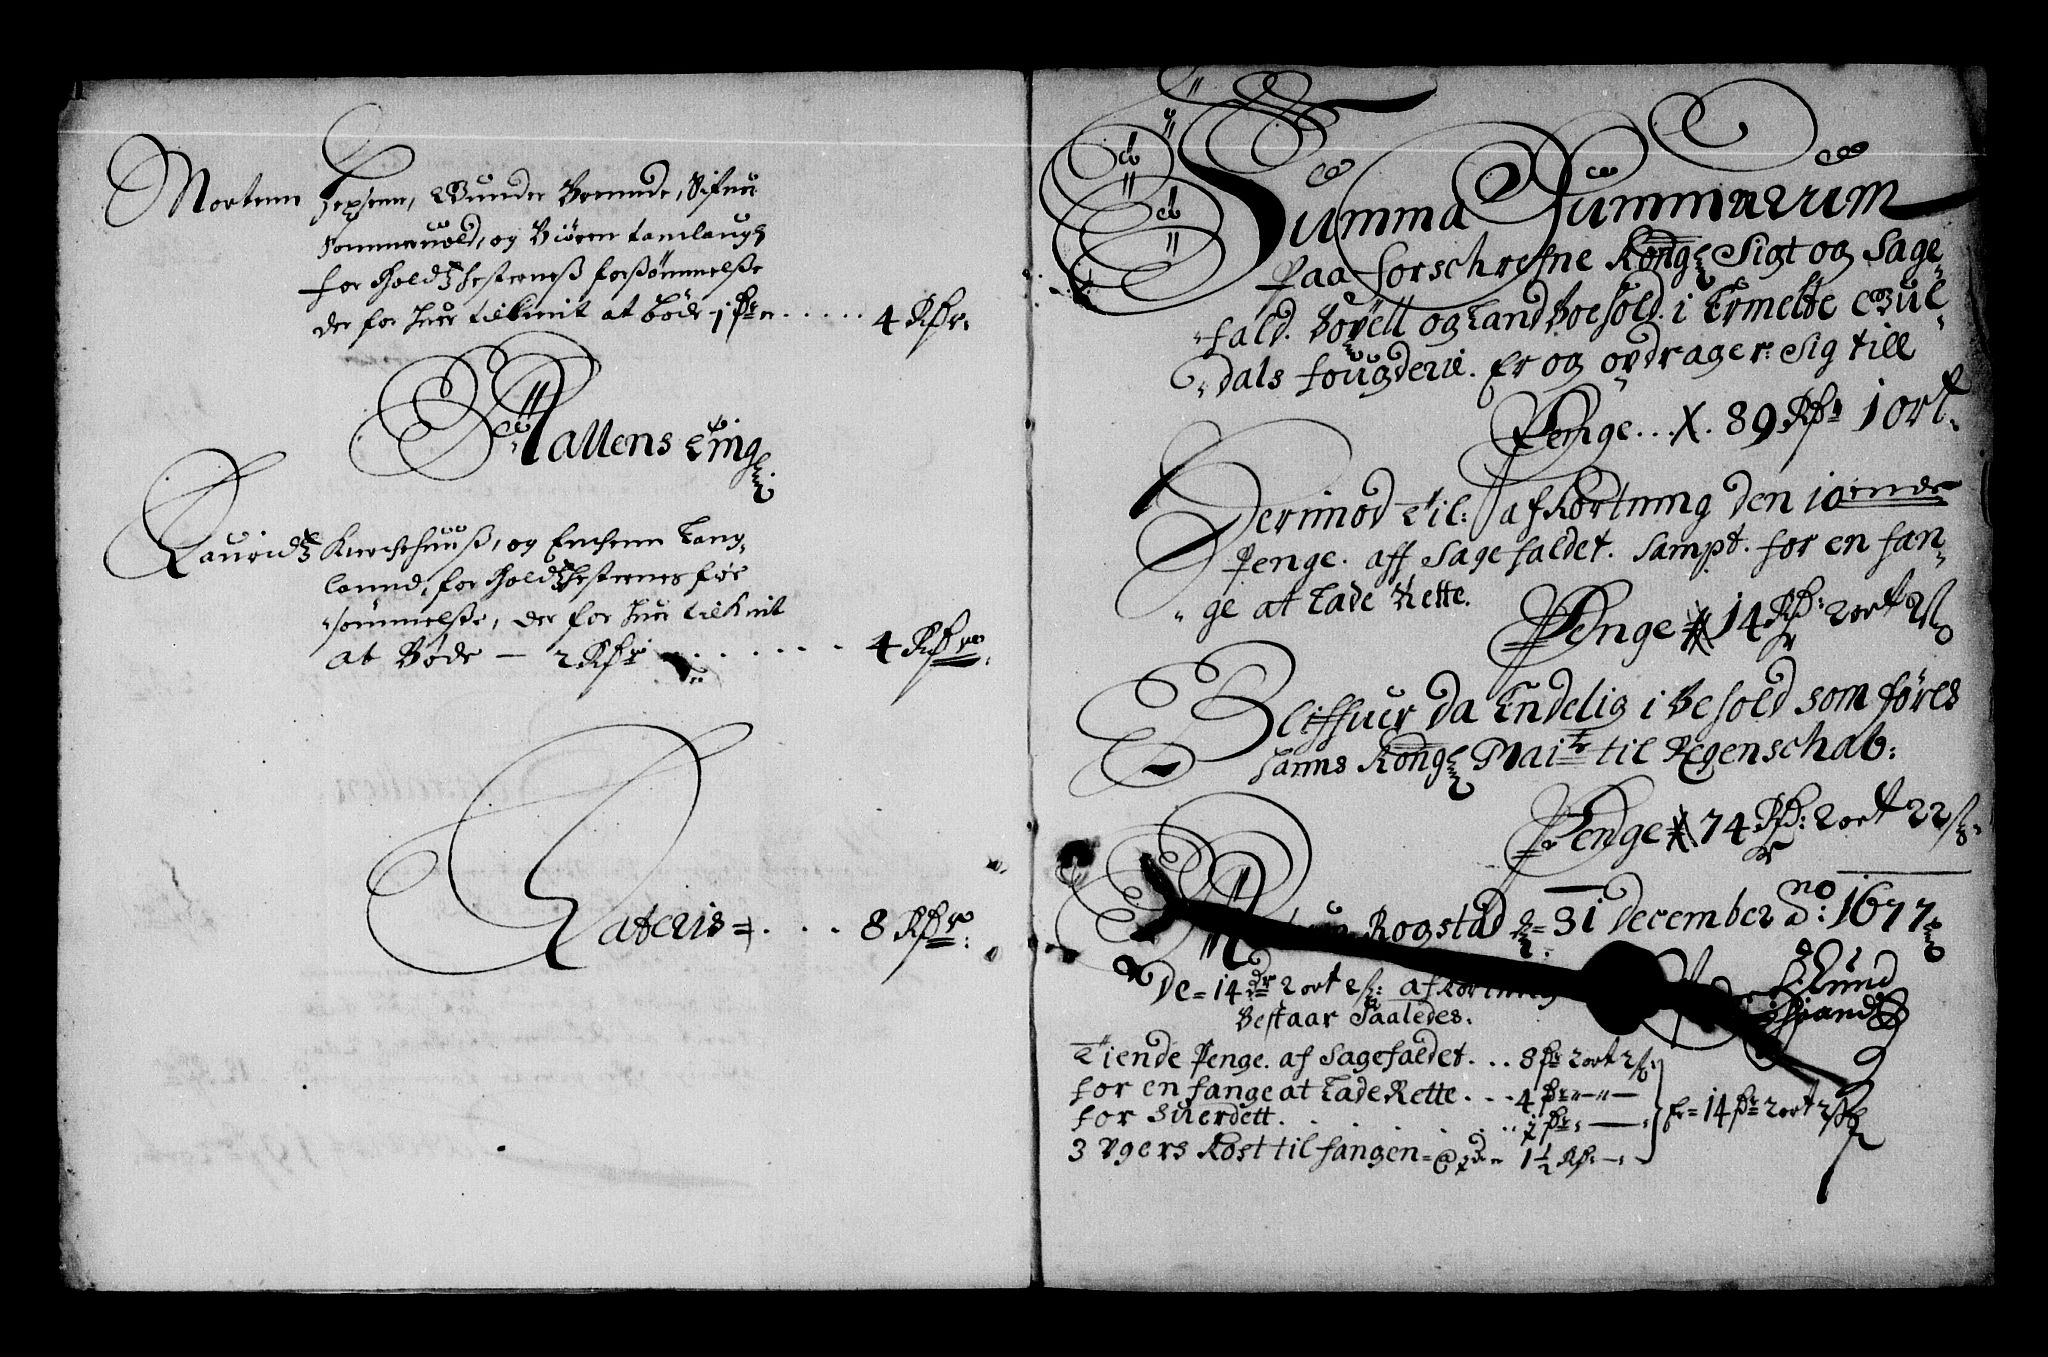 Mortenn Jepsenn, Gunder Brennde, Sifuer
Sommeruold, og Biøren Lamlaugs
for Holdsfesternes forsømmelsse
der for huer tilkint at bøde 1 Rdr ..... 4 Rdr.
Hattens ting
Lauridtz Kirchehuuss, og Enchenn Lang-
lannd, for Holdsfesternes for
sømmelsse, der for huer tilkint
at Bøde — 2 Rdr ....... 4 Rdr
Lateris = ... 8 Rdr.
Summa Summarum
Paa forschrefne Kong: Sigt og Sage-
fald. Bøxell og Landboehold. i Ermelte Gul-
dals fougderie. Er og opdrager: Sig till
Penge... 89 Rdr 1 ort.
Derimod til: afkortning den 10ende
Penge. aff Sagefaldet. Sampt. for en fan-
ge at Lade Rette.
Penge 14 Rdr: 2 ort 2 s
Bliffuer da Endelig i Behold som føres
hanns Kong: Mai:tz til Regenschab:
Penge 74 Rd: 2 ort 22 s:
Rogstad d= 31 December Ao: 1677
De = 14 Dr 2 ort 2 s: afkortning
Bestaar Saaledes.
Tiende Penge. af Sagefaldet... 8 Rr 2 ort 2 s
for en fange at Lade Rette... 4 Rr — —
for Suerdett. . . . . . . 1 Rr —
3 Vgers Kost til fangen = 1½ Rdr —
Er = 14 Rr 2 ort 2 s